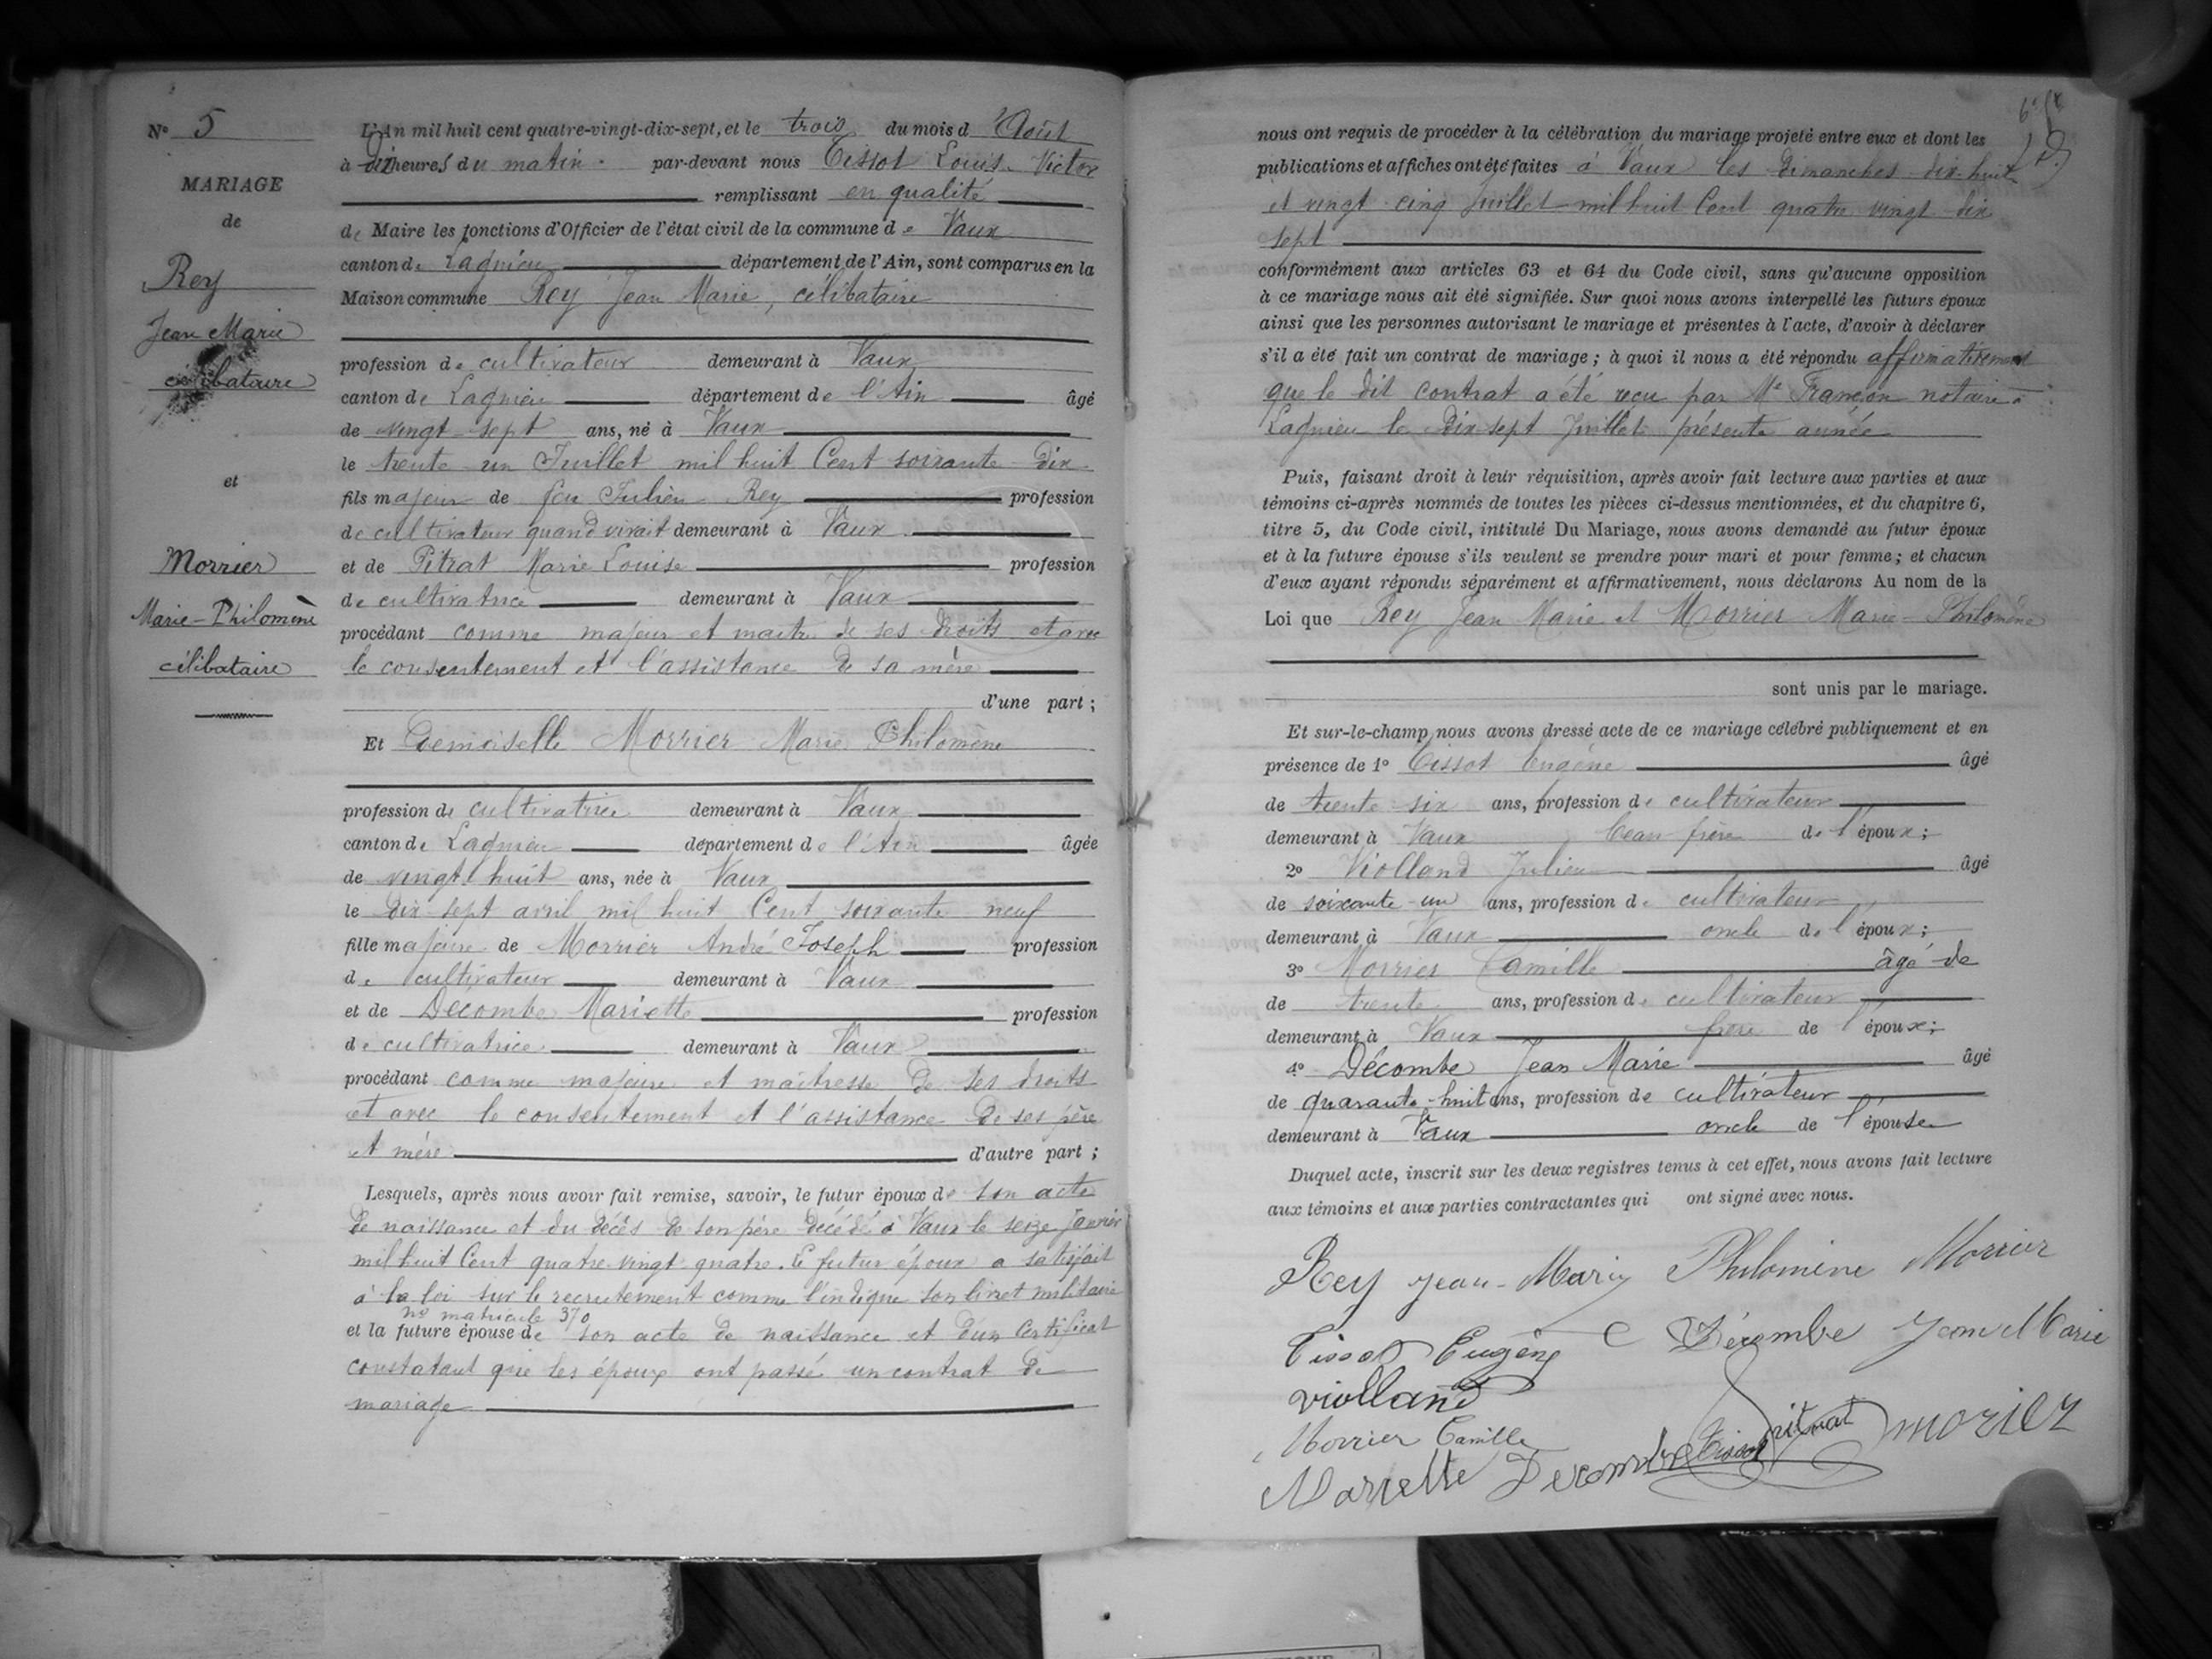 N° 5
MARIAGE
de
Rey
Jean Marie
célibataire
et
Morrier
Marie-Philomène
célibataire
L'An mil huit cent quatre-vingt-dix-sept, et le trois du mois d'Août
à dix heures du matin. par-devant nous Tissot Louis-Victor
remplissant en qualité
de Maire les fonctions d'Officier de l'état civil de la commune de Vaux
canton de Lagnieu département de l'Ain, sont comparus en la
Maison commune Rey Jean Marie, célibataire
profession de cultivateur demeurant à Vaux
canton de Lagnieu département de l'Ain âgé
de vingt-sept ans, né à Vaux
le trente un Juillet mil huit Cent soixante-dix
fils majeur de feu Julien Rey profession
de cultivateur quand vivait demeurant à Vaux
et de Pitrat Marie Louise profession
de cultivatrice demeurant à Vaux
procédant comme majeur et maitre de ses droits et avec
le consentement et l'assistance de sa mère
d'une part ;
Et Demoiselle Morrier Marie Philomène
profession de cultivatrice demeurant à Vaux
canton de Lagnieu département de l'Ain âgée
de vingt huit ans, née à Vaux
le dix-sept avril mil huit Cent soixante neuf
fille majeure de Morrier André Joseph profession
de cultivateur demeurant à Vaux
et de Décombe Mariette profession
de cultivatrice demeurant à Vaux
procédant comme majeure et maitresse de ses droits
et avec le consentement et l'assistance de ses père
et mère d'autre part ;
Lesquels, après nous avoir fait remise, savoir, le futur époux de son acte
de naissance et du décès de son père décédé à Vaux le seize Janvier
mil huit Cent quatre-vingt quatre. Le futur époux a satisfait
à la loi sur le recrutement comme l'indique son livret militaire
n° matricule 370
et la future épouse de son acte de naissance et d'un Certificat
constatant que les époux ont passé un contrat de
mariage
nous ont requis de procéder à la célébration du mariage projeté entre eux et dont les
publications et affiches ont été faites à Vaux les dimanches dix-huit
et vingt-cinq Juillet mil huit Cent quatre vingt dix
sept
conformément aux articles 63 et 64 du Code civil, sans qu'aucune opposition
à ce mariage nous ait été signifiée. Sur quoi nous avons interpellé les futurs époux
ainsi que les personnes autorisant le mariage et présentes à l'acte, d'avoir à déclarer
s'il a été fait un contrat de mariage ; à quoi il nous a été répondu affirmativement
que le dit contrat a été reçu par Me Françon notaire à
Lagnieu le dix-sept Juillet présente année
Puis, faisant droit à leur réquisition, après avoir fait lecture aux parties et aux
témoins ci-après nommés de toutes les pièces ci-dessus mentionnées, et du chapitre 6,
titre 5, du Code civil, intitulé Du Mariage, nous avons demandé au futur époux
et à la future épouse s'ils veulent se prendre pour mari et pour femme ; et chacun
d'eux ayant répondu séparément et affirmativement, nous déclarons Au nom de la
Loi que Rey Jean Marie et Morrier Marie-Philomène
sont unis par le mariage.
Et sur-le-champ nous avons dressé acte de ce mariage célébré publiquement et en
présence de 1° Tissot Eugène âgé
de trente-six ans, profession de cultivateur
demeurant à Vaux beau-frère de l'époux ;
2° Violland Julien âgé
de soixante-un ans, profession de cultivateur
demeurant à Vaux oncle de l'époux ;
3° Morrier Camille âgé de
de trente ans, profession de cultivateur
demeurant à Vaux frère de l'épouxe ;
4° Décombe Jean Marie âgé
de quarante-huit ans, profession de cultivateur
demeurant à Vaux oncle de l'épouse
Duquel acte, inscrit sur les deux registres tenus à cet effet, nous avons fait lecture
aux témoins et aux parties contractantes qui ont signé avec nous.
Rey Jean-Marie Philomène Morrier
Tissot Eugène Décombe Jean Marie
violland
Morrier Camille
Mariette Decombe Tissot pitrat morier